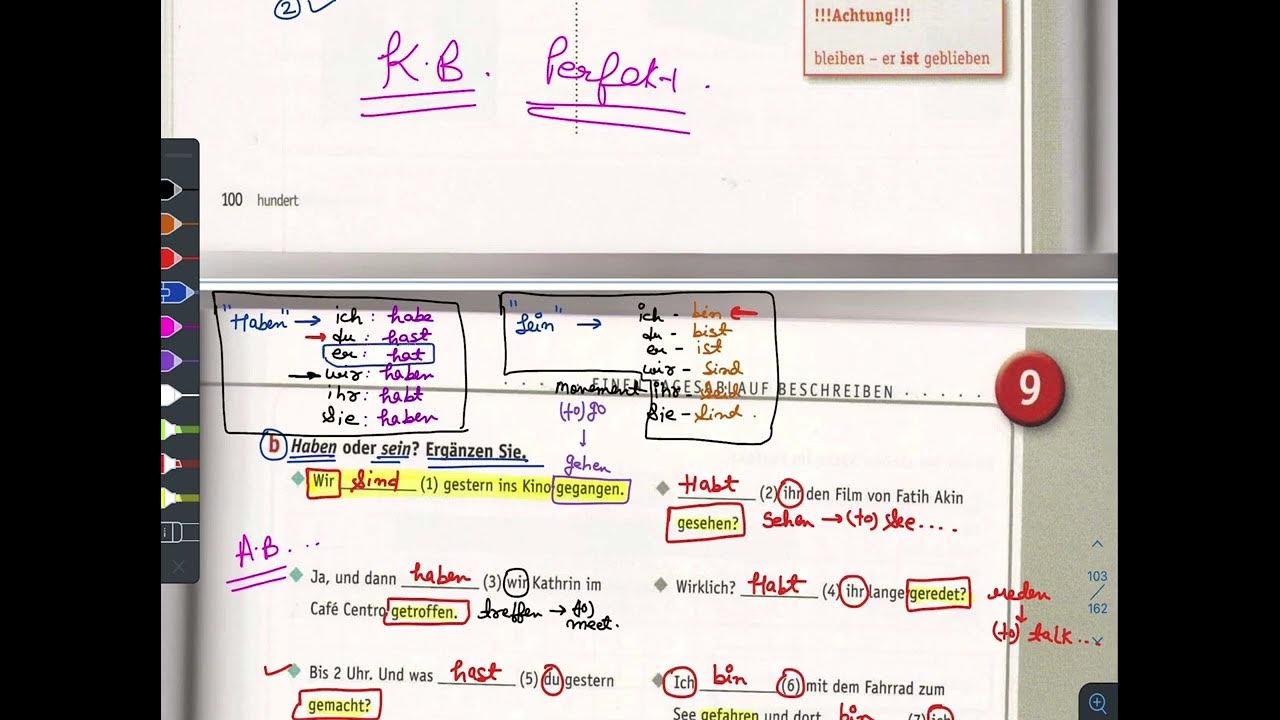 2
!!!Achtung!!!
bleiben – er ist geblieben
K.B. Perfekt.
100 hundert
"Haben" → ich : habe
→ du : hast
er : hat
→ wir : haben
ihr : habt
Sie : haben
"Sein" → ich - bin ←
du - bist
er - ist
wir - sind
ihr - seid
Sie - sind.
movement
(to) go
↓
gehen
EINEN TAGESABLAUF BESCHREIBEN
9
b Haben oder sein? Ergänzen Sie.
Wir sind (1) gestern ins Kino gegangen.
Habt (2) ihr den Film von Fatih Akin
gesehen? Sehen → (to) see....
A.B...
Ja, und dann haben (3) wir Kathrin im
Café Centro getroffen. treffen → (to) meet.
Wirklich? Habt (4) ihr lange geredet? reden
↓
(to) talk...
Bis 2 Uhr. Und was hast (5) du gestern
gemacht?
Ich bin (6) mit dem Fahrrad zum
See gefahren und dort bin (7) ich
103
/
162